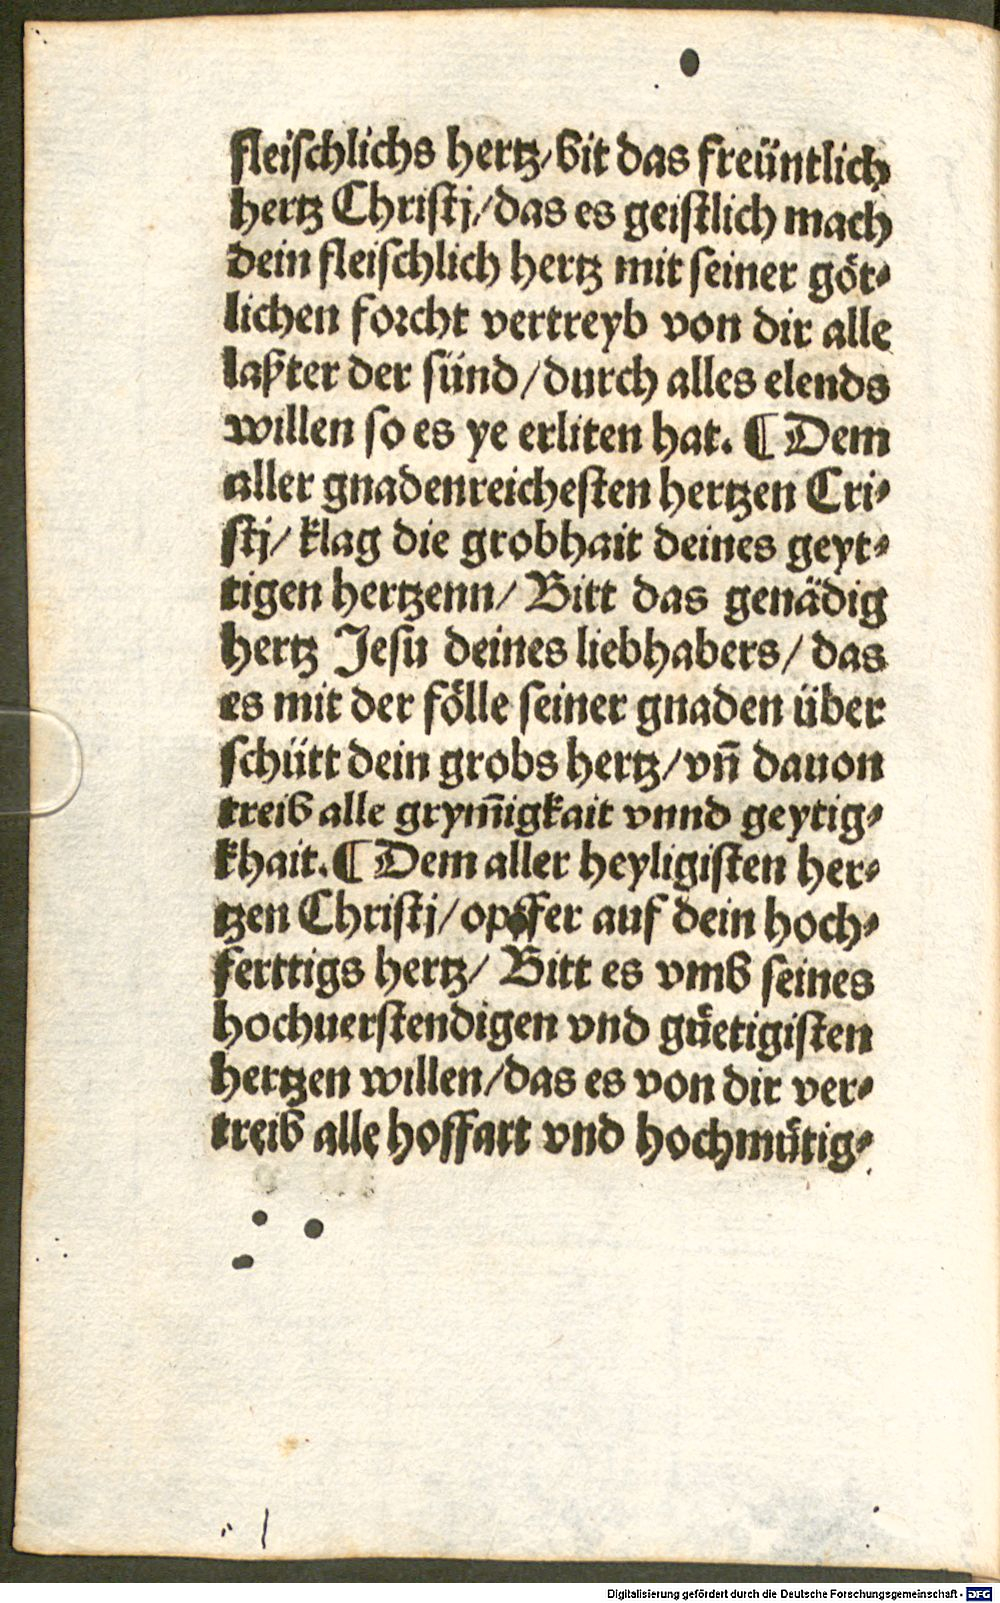 fleiſchlichs hertz/bit das freüntlich
hertz Chriſtj/das es geiſtlich mach
dein fleiſchlich hertz mit ſeiner göt⸗
lichen forcht vertreyb von dir alle
laßter der ſünd/durch alles elends
willen ſo es ye erliten hat. ¶ Dem
aller gnadenreicheſten hertzen Cri⸗
ſtj/ klag die grobhait deines geyt⸗
tigen hertzenn/ Bitt das genädig
hertz Jeſu deines liebhabers/ das
es mit der fölle ſeiner gnaden über
ſchütt dein grobs hertz/vñ dauon
treib alle grym̃igkait vnnd geytig⸗
khait. ¶ Dem aller heyligiſten her⸗
tzen Chriſtj/opffer auf dein hoch⸗
ferttigs hertz/ Bitt es vmb ſeines
hochuerſtendigen vnd gůetigiſten
hertzen willen/das es von dir ver⸗
treib alle hoffart vnd hochmůtig⸗
Digitalisierung gefördert durch die Deutsche Forschungsgemeinschaft - DFG